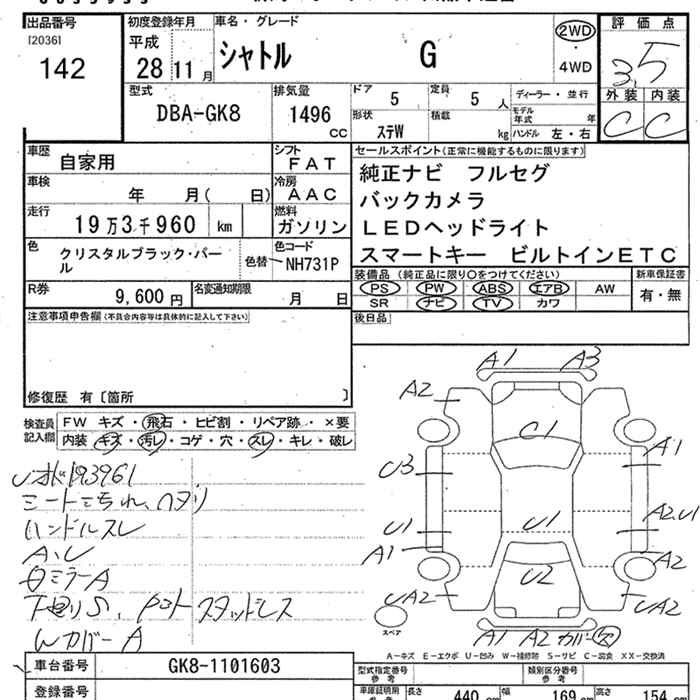 出品番号
[2036]
142
初度登録年月
平成
28 11 月
車名・グレード
シャトル G
2WD
・
4WD
評価点
3.5
外装 内装
C C
型式
DBA-GK8
排気量
1496
CC
ドア
5
定員
5 人
形状
ステW
積載
kg
ディーラー・並行
モデル年式 年
ハンドル 左・右
車歴
自家用
シフト
FAT
車検
年 月( 日)
冷房
AAC
走行
19万3千960 km
燃料
ガソリン
色
クリスタルブラック・パール
色替
色コード
NH731P
R券
9,600 円
名変通知期限
月 日
セールスポイント(正常に機能するものに限ります)
純正ナビ フルセグ
バックカメラ
LEDヘッドライト
スマートキー ビルトインETC
装備品(純正品に限り○をつけてください)
PS PW ABS エアB AW
SR ナビ TV カワ
新車保証書
有・無
後日品
注意事項申告欄(不具合内容等は具体的に記入して下さい)
修復歴 有〔箇所 〕
検査員
記入欄
FW キズ・飛石・ヒビ割・リペア跡・×要
内装 キズ・汚レ・コゲ・穴・スレ・キレ・破レ
193961
ハンドルスレ
ミラーA
スタッドレス
カバーA
A1 A3
A2
C1
U3
A1
U1
U1
A2.U1
A1
A2
U2
UA2
UA2
スペア
A1 A2 カバー
A-キズ E-エクボ U-凹み W-補修跡 S-サビ C-腐食 XX-交換済
車台番号
GK8-1101603
登録番号
型式指定番号
参考
類別区分番号
参考
車庫証明用
長さ 440 cm 幅 169 cm 高さ 154 cm